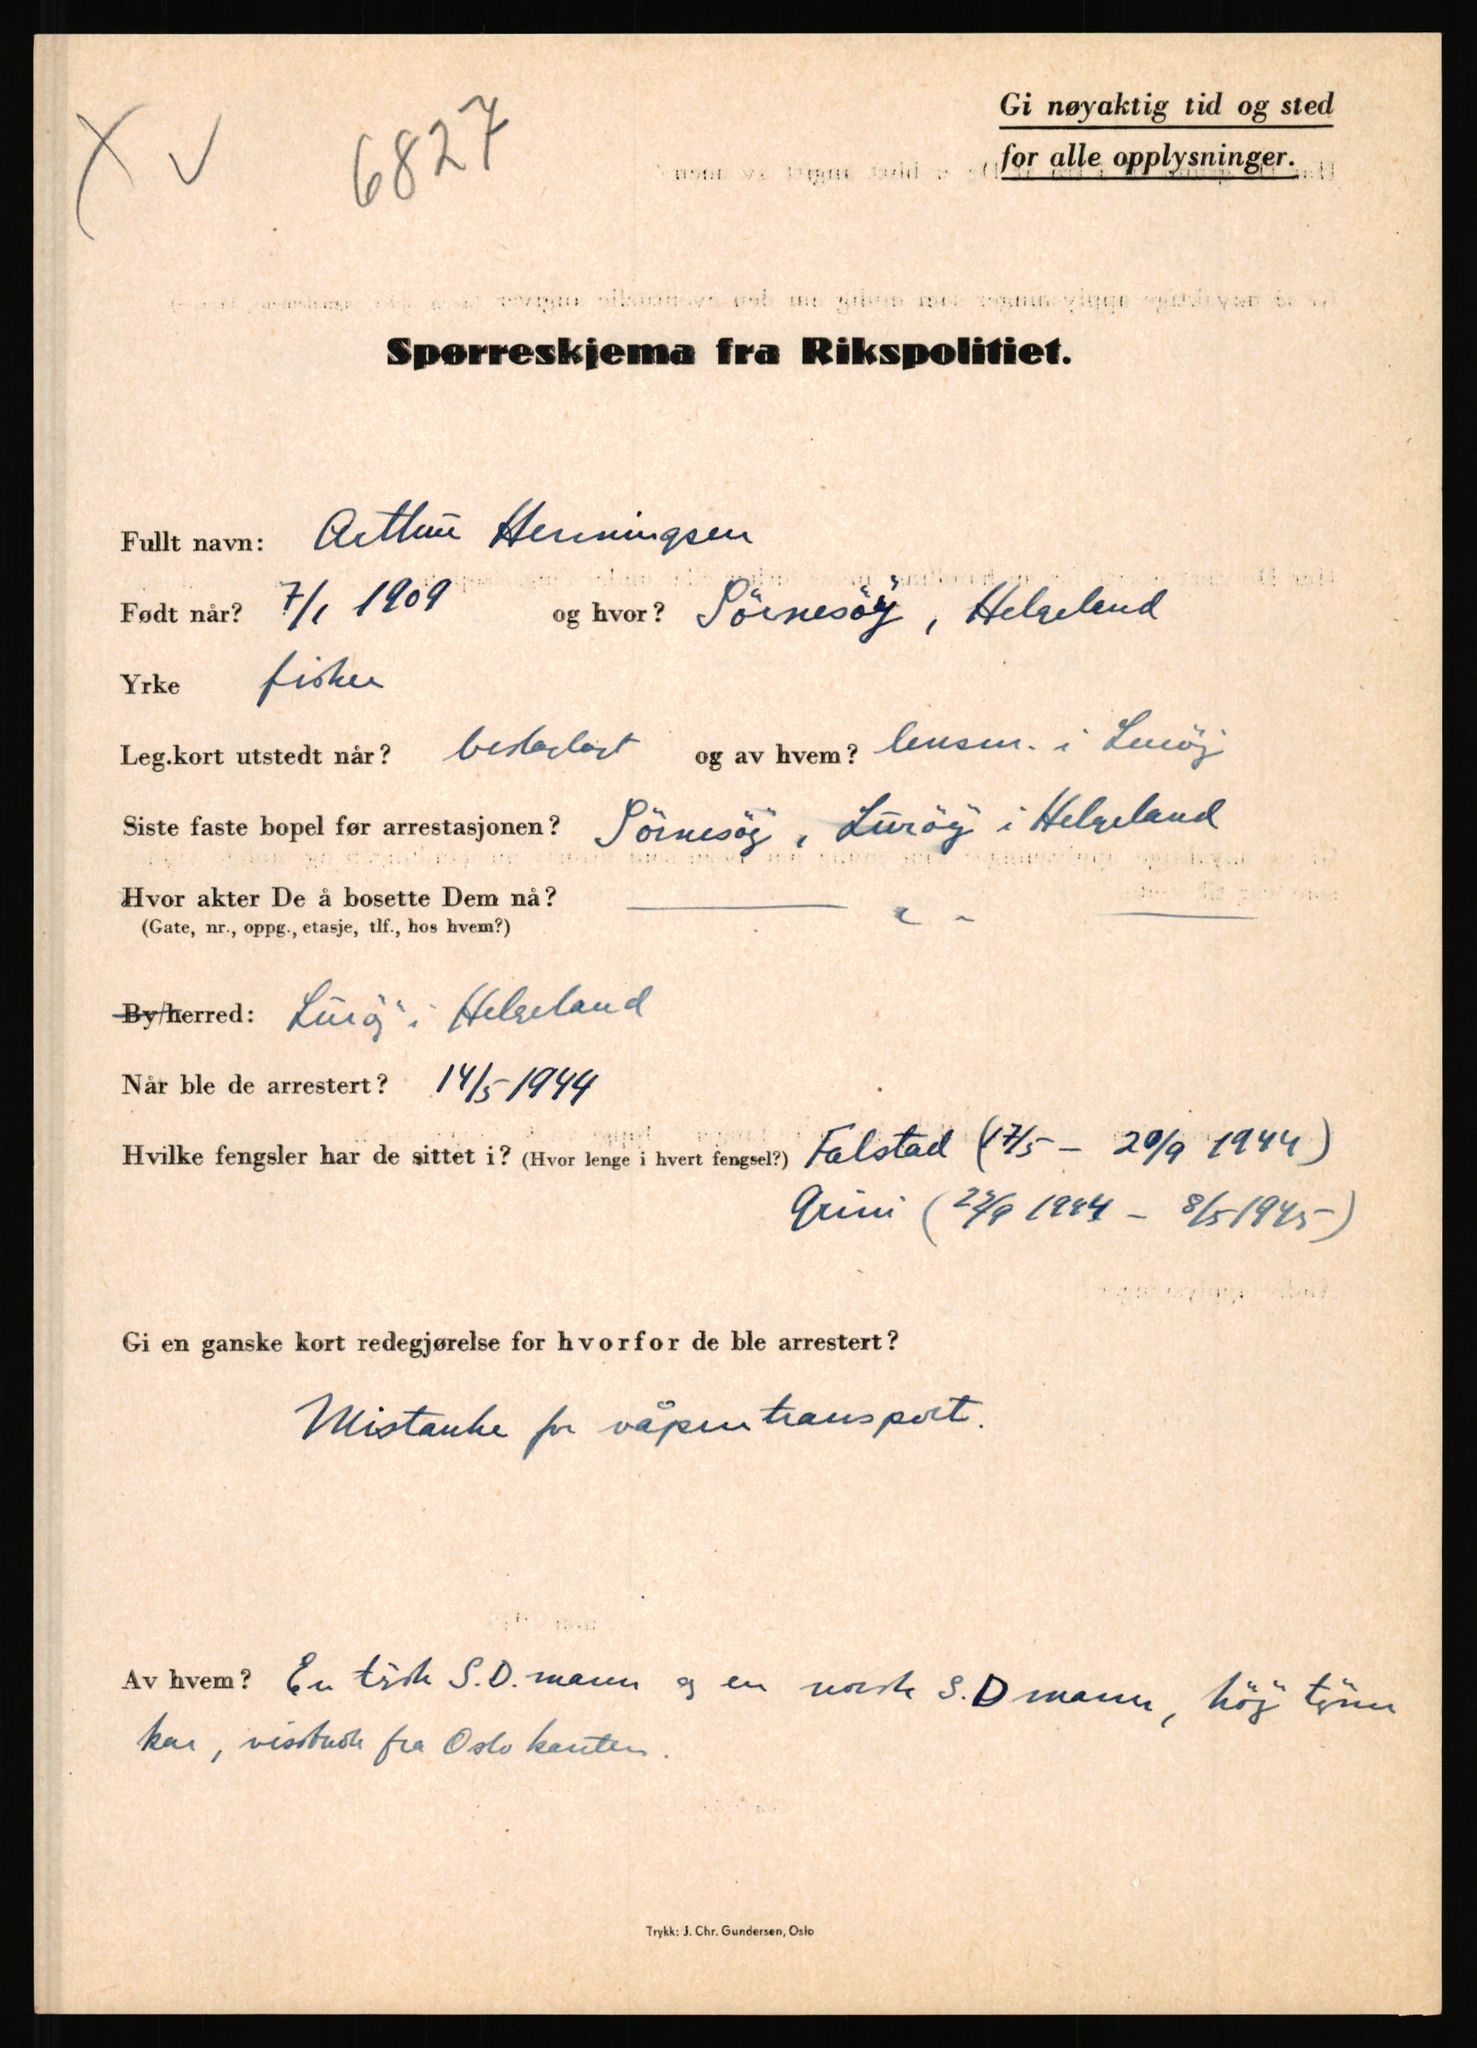 6827
Gi nøyaktig tid og sted
for alle opplysninger.
Spørreskjema fra Rikspolitiet.
Fullt navn: Arthur Henningsen
Født når? 7/1 1909 og hvor? Sörnesöy, Helgeland
Yrke fisker
Leg.kort utstedt når? beslaglagt og av hvem? lensm. i Luröy
Siste faste bopel før arrestasjonen? Sörnesöy, Luröy i Helgeland
Hvor akter De å bosette Dem nå? — " —
(Gate, nr., oppg., etasje, tlf., hos hvem?)
By/herred: Luröy i Helgeland
Når ble de arrestert? 14/5-1944
Hvilke fengsler har de sittet i? (Hvor lenge i hvert fengsel?) Falstad (17/5 – 20/9 1944)
Grini (22/9 1944 – 8/5 1945)
Gi en ganske kort redegjørelse for hvorfor de ble arrestert?
Mistanke for våpentransport.
Av hvem? En tysk S.D. mann og en norsk S.D mann, höy tynn
kar, visstnok fra Oslo kanten.
Trykk: J. Chr. Gundersen, Oslo